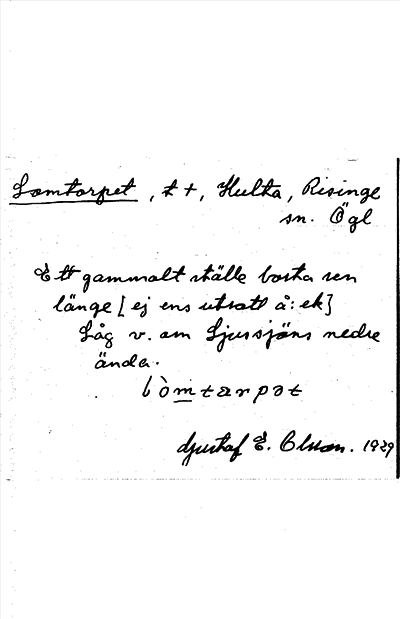 Lomtorpet, t +, Hulta, Risinge
sn. Ögl
Ett gammalt ställe borta sen
länge [ej ens utsatt å: ek]
Låg v. om Ljussjöns nedre
ända.
Gustaf E. Olsson. 1929